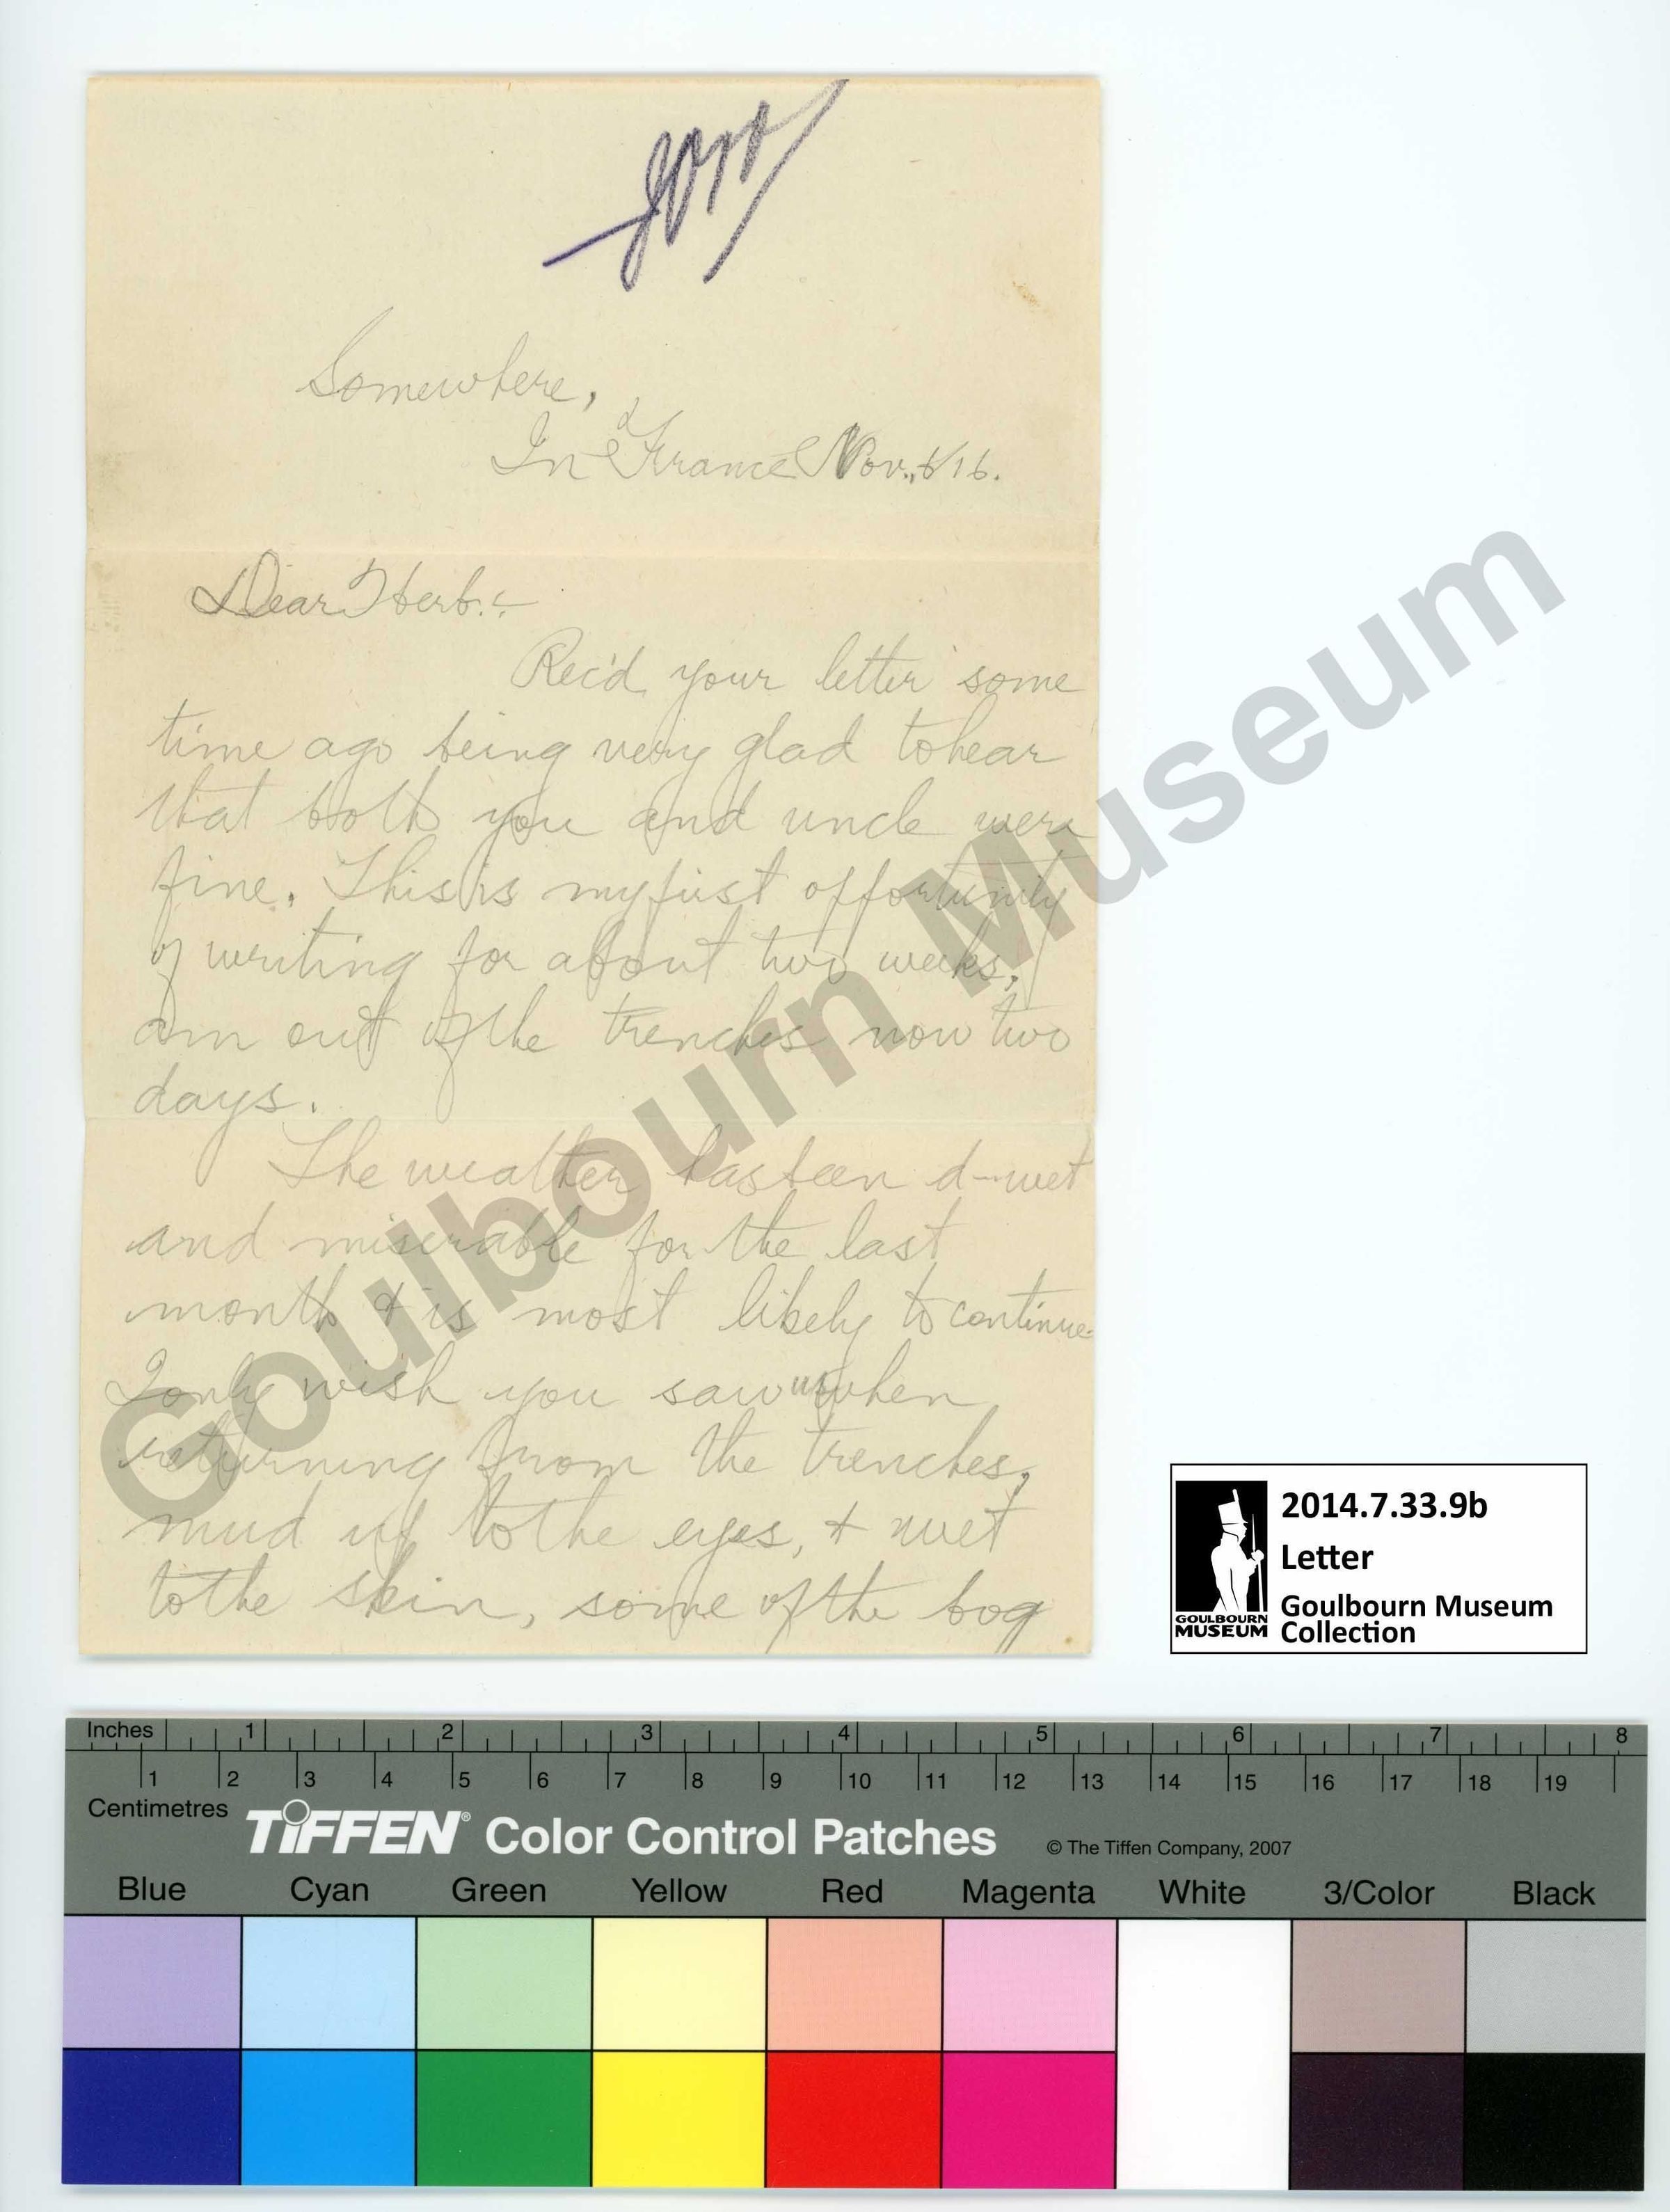 Somewhere,
In France Nov., 6/16.
Dear Herb.:-
Rec'd, your letter some
time ago being very glad to hear
that both you and uncle were
fine. This is my first opportunity
of writing for about two weeks.
am out of the trenches now two
days.
The weather has been d--wet
and miserable for the last
month & is most likely to continue.
I only wish you saw us when
returning from the trenches,
mud up to the eyes, & wet
to the skin, some of the bog
Goulbourn Museum
2014.7.33.9b
Letter
Goulbourn Museum
Collection
GOULBOURN
MUSEUM
Inches 1 2 3 4 5 6 7 8
1 2 3 4 5 6 7 8 9 10 11 12 13 14 15 16 17 18 19
Centimetres
TIFFEN® Color Control Patches © The Tiffen Company, 2007
Blue Cyan Green Yellow Red Magenta White 3/Color Black